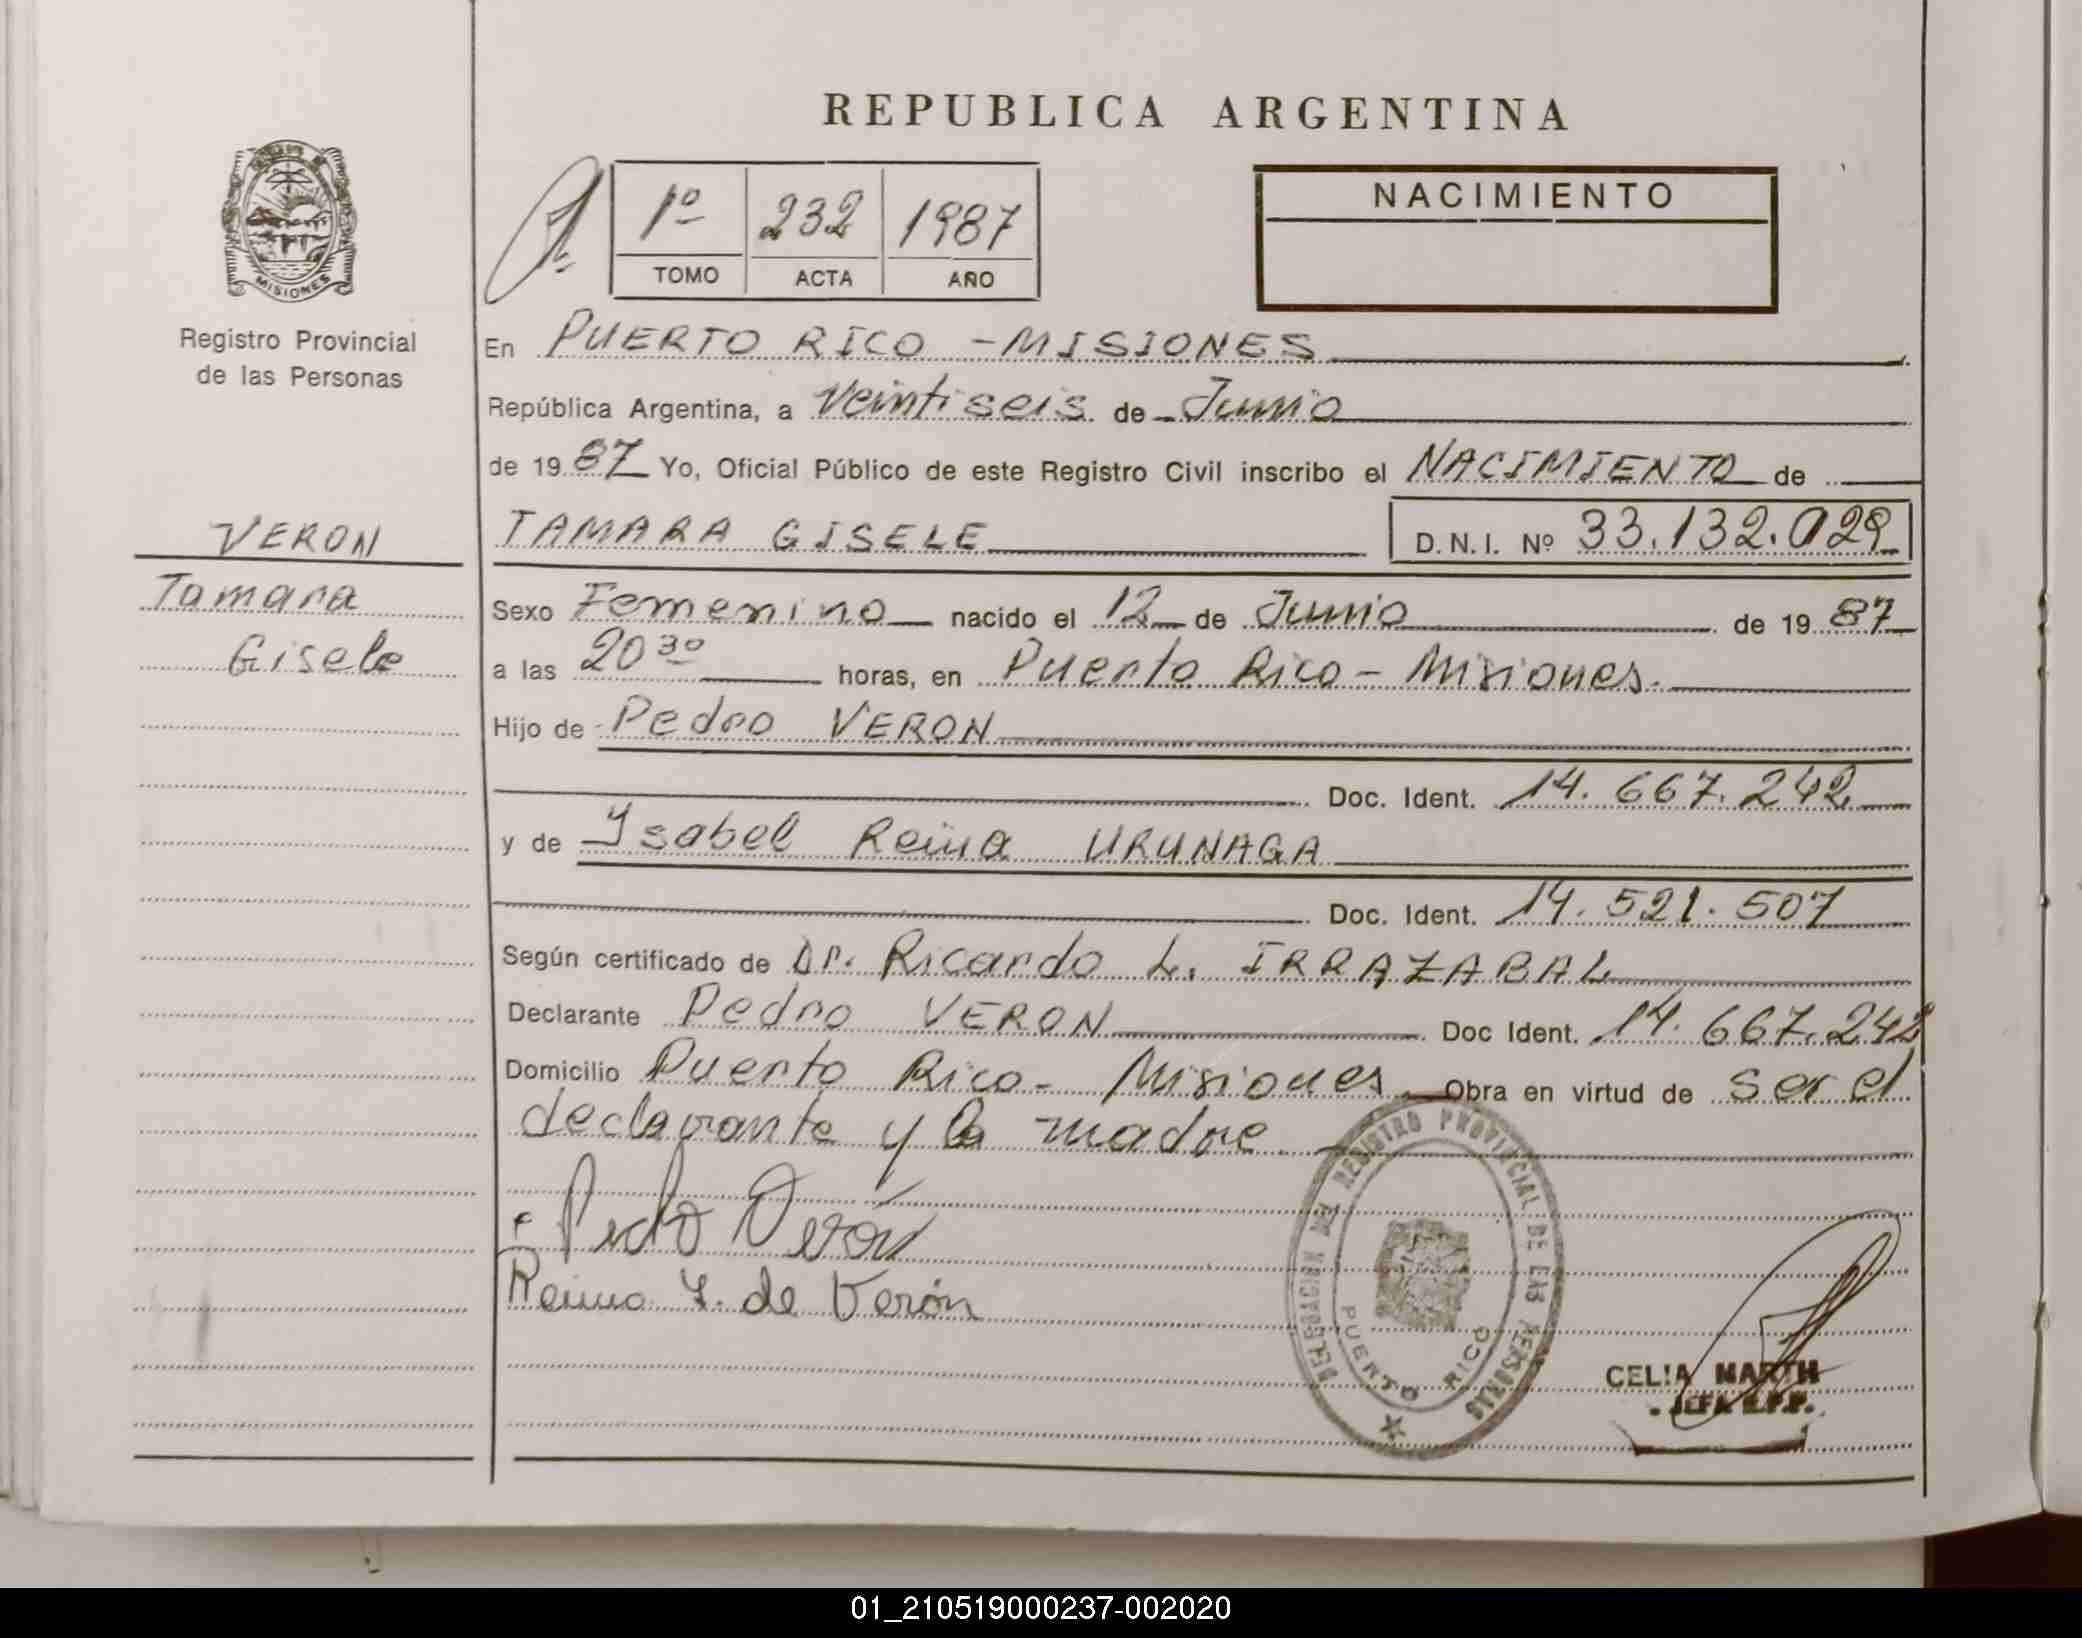 REPUBLICA ARGENTINA
MISIONES
Registro Provincial
de las Personas
1º 232 1987
TOMO ACTA AÑO
NACIMIENTO
En PUERTO RICO - MISIONES
República Argentina, a Veintiseis de Junio
de 1987 Yo, Oficial Público de este Registro Civil inscribo el NACIMIENTO de
VERON
Tamara
Gisele
TAMARA GISELE D.N.I. Nº 33.132.029
Sexo Femenino nacido el 12 de Junio de 1987
a las 20 30 horas, en Puerto Rico - Misiones.
Hijo de Pedro VERON
Doc. Ident. 14.667.242
y de Ysabel Reina URUNAGA
Doc. Ident. 14.521.507
Según certificado de Dr. Ricardo L. IRRAZABAL
Declarante Pedro VERON Doc Ident. 14.667.242
Domicilio Puerto Rico - Misiones Obra en virtud de ser el
declarante y la madre
Pedro Verón
Reina Y. de Verón
DELEGACION DEL REGISTRO PROVINCIAL DE LAS PERSONAS
PUERTO RICO
CELIA MARTH
JEFA R.P.P.
01_210519000237-002020